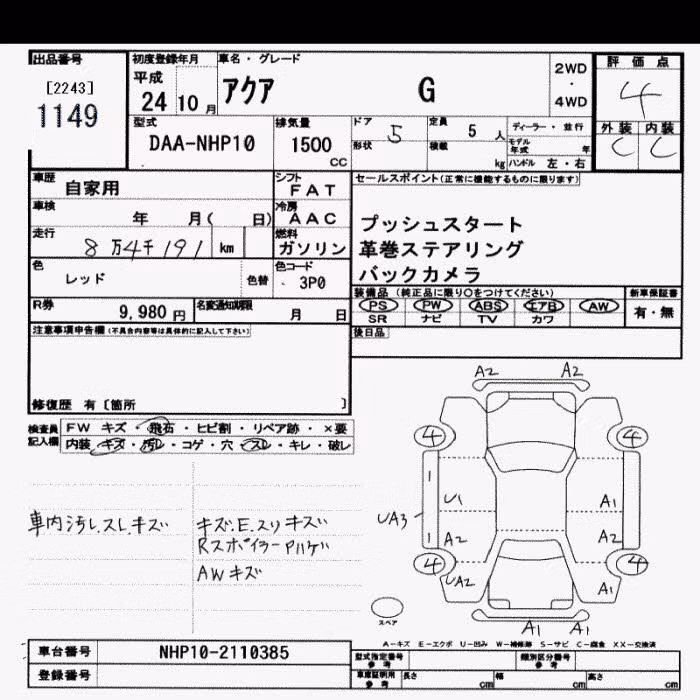 出品番号
[2243]
1149
初度登録年月
平成
24 10 月
車名・グレード
アクア G
2WD
・
4WD
評価点
4
外装 内装
C C
型式
DAA-NHP10
排気量
1500
CC
ドア 5
定員 5 人
ディーラー・並行
形状
積載 kg
モデル年式 年
ハンドル 左・右
車歴
自家用
シフト
FAT
車検 年 月( 日)
冷房
AAC
走行
8万4千191 km
燃料
ガソリン
色
レッド
色替
色コード
3P0
R券
9,980 円
名変通知期限
月 日
セールスポイント(正常に機能するものに限ります)
プッシュスタート
革巻ステアリング
バックカメラ
装備品(純正品に限り○をつけてください)
PS PW ABS エアB AW
SR ナビ TV カワ
新車保証書
有・無
後日品
注意事項申告欄(不具合内容等は具体的に記入して下さい)
修復歴 有〔箇所 〕
検査員記入欄
FW キズ・飛石・ヒビ割・リペア跡・×要
内装・キズ・汚レ・コゲ・穴・スレ・キレ・破レ
車内汚レ.スレ.キズ
キズ.E.スリキズ
RスポイラーPハゲ
AWキズ
A2 A2
4 4
1
U1 A1
UA3
1 A2 A2
4 4
UA2 A1
A1 A1
スペア
A-キズ E-エクボ U-凹み W-補修跡 S-サビ C-腐食 XX-交換済
車台番号
NHP10-2110385
登録番号
型式指定番号
参考
類別区分番号
参考
車庫証明用
参考
長さ cm
幅 cm
高さ cm